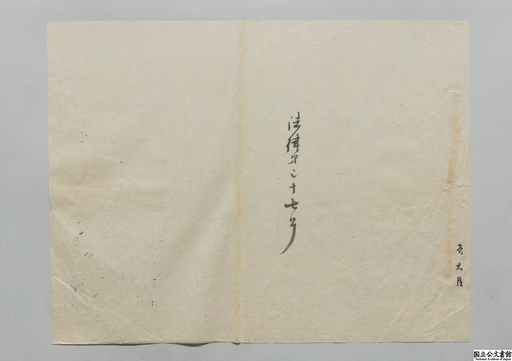 法律第三十七号
各大臣
国立公文書館
National Archives of Japan